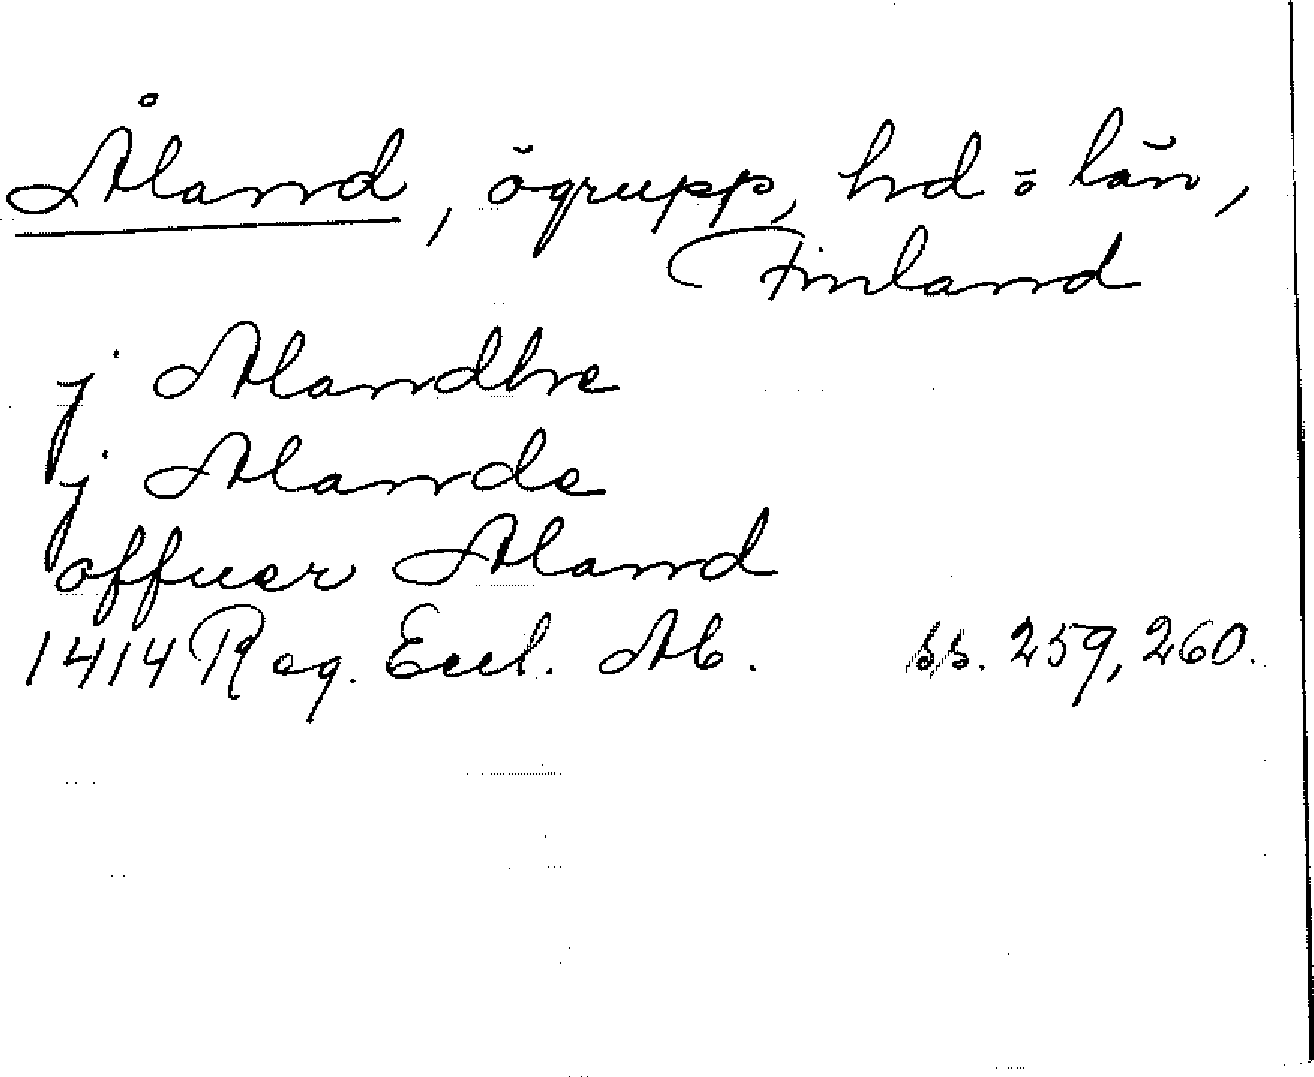 Åland, ögrupp, hd o län,
Finland
j Alandhe
j Alande
offuer Aland
1414 Reg. Eccl. Ab. ss. 259, 260.